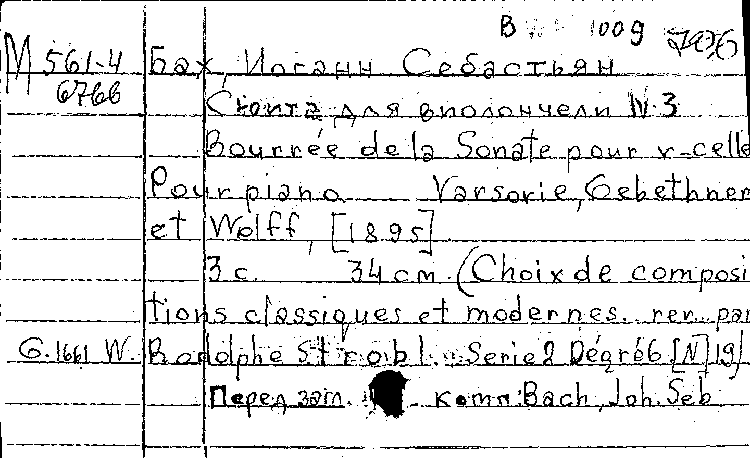 BWV 1009
М 561-4 Бах, Иоганн Себастьян
6766 Сюита для виолончели N.3
Bourrée de la Sonate pour v-celle
Pour piano Varsovie, Gebethner
et Wolff, [1895]
3 с. 34 см. (Choix de composi
tions classiques et modernes.. rev. par
G.1661 W. Rodolphe Strobl. Serie 2 Degré 6 [N] 19)
Перед заг. комп: Bach, Joh. Seb